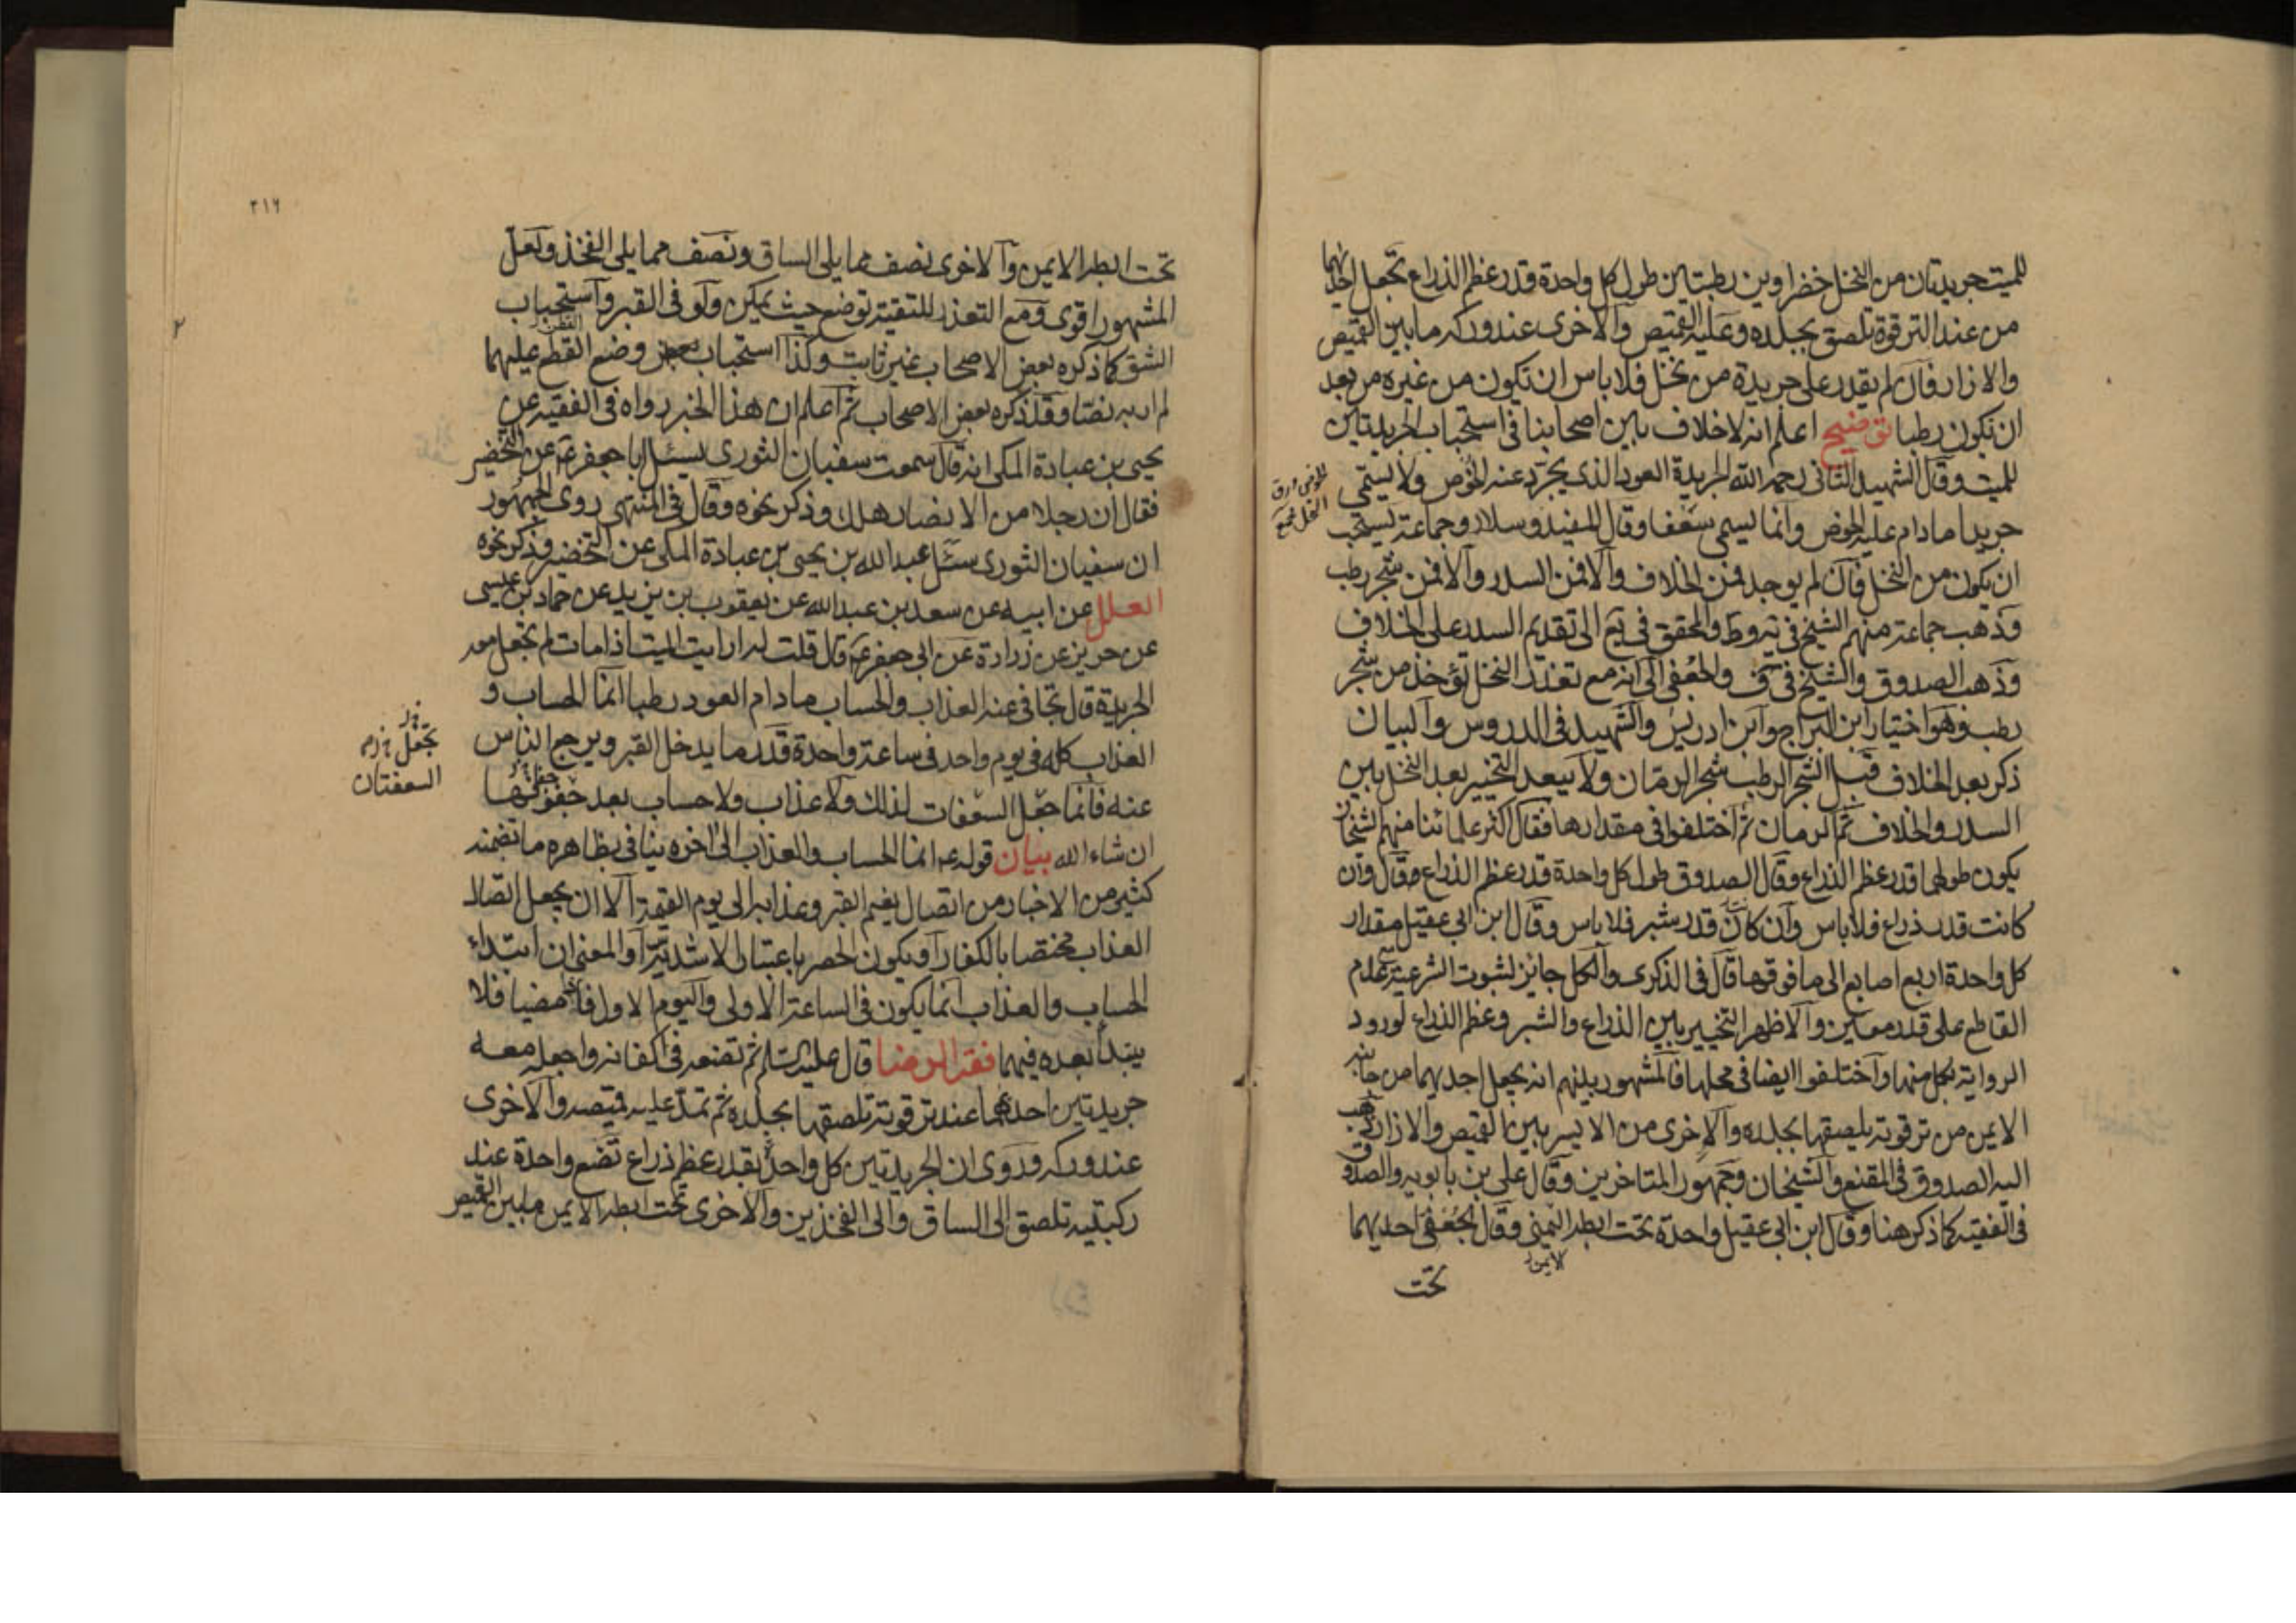 للميت جريدتان من النخل خضراوين رطبتين طول كل واحدة قدر عظم الذراع تجعل احديهما
من عند الترقوة تلصق بجلده وعليه القميص والاخرى عند وركه ما بين القميص
والازار فان لم يقدر على جريدة من نخل فلا باس ان تكون من غيره من بعد
ان تكون رطبا توضيح اعلم انه لاخلاف بين اصحابنا في استحباب الجريدتين
للميت وقال الشهيد الثاني رحمه الله الجريدة العود الذي يجرد عنه الخوص ولا يسمى
الخوص ورق
النخل
جريدا مادام عليه الخوص وانما يسمى سعفا وقال المفيد وسلار وجماعة يستحب
ان يكون من النخل فان لم يوجد فمن الخلاف والا فمن السدر والا فمن شجر رطب
وذهب جماعة منهم الشيخ في يه وط والمحقق في يع الى تقديم السدر على الخلاف
وذهب الصدوق والشيخ في ف والجعفى الى انه مع تعذر النخل تؤخذ من شجر
رطب وهو اختيار ابن البراج وابن ادريس والشهيد في الدروس والبيان
ذكر بعد الخلاف قبل الشجر الرطب شجر الرمان ولا يبعد التخيير بعد النخل بين
السدر والخلاف ثم الرمان ثم اختلفوا في مقدارها فقال اكثر علمائنا منهم الشيخان
يكون طولها قدر عظم الذراع وقال الصدوق طول كل واحدة قدر عظم الذراع وقال وان
كانت قدر ذراع فلا باس وان كان قدر شبر فلا باس وقال ابن ابي عقيل مقدار
كل واحدة اربع اصابع الى ما فوقها قال في الذكرى والكل جايز لثبوت الشرعية مع عدم
القاطع على قدر معين والاظهر التخيير بين الذراع والشبر وعظم الذراع لورود
الرواية بكل منها واختلفوا ايضا في محلها فالمشهور بينهم انه يجعل احديهما من جانبه
الايمن من ترقوته يلصقها بجلده والاخرى من الايسر بين القميص والازار ذهب
اليه الصدوق في المقنع والشيخان وجمهور المتاخرين وقال على بن بابويه والصدوق
في الفقيه كما ذكر هنا وقال ابن ابي عقيل واحدة تحت ابطه اليمنى وقال الجعفى احديهما
الايمن
تحت
٢١٦
تحت ابطه الايمن والاخرى نصف مما يلي الساق ونصف مما يلي الفخذ ولعل
المشهور اقوى ومع التعذر للتقية توضع حيث يمكن ولو في القبر واستحباب
الشق كما ذكره بعض الاصحاب غير ثابت وكذا استحباب وضع القطن عليهما
القطن
لم ار به نصا وقد ذكره بعض الاصحاب ثم اعلم ان هذا الخبر رواه في الفقيه عن
يحيى بن عبادة المكى انه قال سمعت سفيان الثورى يسئل ابا جعفر ع عن التخضير
فقال ان رجلا من الانصار هلك وذكر نحوه وقال في المنتهى روى الجمهور
ان سفيان الثورى سئل عبدالله بن يحيى بن عبادة المكى عن التخضير وذكر نحوه
العلل عن ابيه عن سعد بن عبدالله عن يعقوب بن يزيد عن حماد بن عيسى
عن حريز عن زرارة عن ابي جعفر ع قال قلت له ارايت الميت اذا مات لم تجعل معه
الجريدة قال تجافى عنه العذاب والحساب مادام العود رطبا انما الحساب و
العذاب كله في يوم واحد في ساعة واحدة قدر ما يدخل القبر ويرجع الناس
تجعل
السعفتان
عنه فانما جعل السعفات لذلك ولا عذاب ولا حساب بعد جفوفها
ان شاء الله بيان قوله ع انما الحساب والعذاب الى اخره ينافي بظاهره ما تضمنه
كثير من الاخبار من اتصال نعيم القبر وعذابه الى يوم القيمة الا ان يجعل اتصال
العذاب مختصا بالكفار او يكون الحصر باعتبار الاشدية او المعنى ان ابتداء
الحساب والعذاب انما يكون في الساعة الاولى واليوم الاول فاذا مضيا فلا
يبتدأ بعده فيهما فقه الرضا قال عليه السلم ثم تضعه في اكفانه واجعل معه
جريدتين احدهما عند ترقوته تلصقها بجلده ثم تمد عليه قميصه والاخرى
عند وركه وروى ان الجريدتين كل واحدة بقدر عظم ذراع تضع واحدة عند
ركبتيه تلصق الى الساق والى الفخذين والاخرى تحت ابطه الايمن ما بين القميص